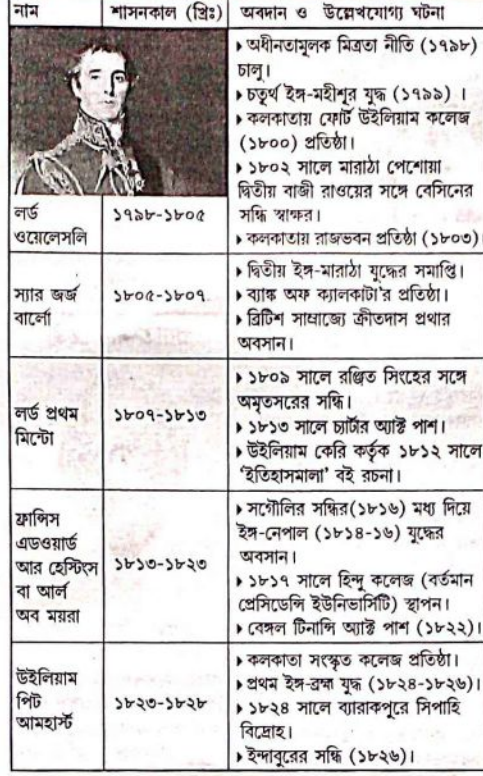 নাম
শাসনকাল (খ্রিঃ)
অবদান ও উল্লেখযোগ্য ঘটনা
লর্ড
ওয়েলেসলি
১৭৯৮-১৮০৫
▸ অধীনতামূলক মিত্রতা নীতি (১৭৯৮)
চালু।
▸ চতুর্থ ইঙ্গ-মহীশূর যুদ্ধ (১৭৯৯) ।
▸ কলকাতায় ফোর্ট উইলিয়াম কলেজ
(১৮০০) প্রতিষ্ঠা।
▸ ১৮০২ সালে মারাঠা পেশোয়া
দ্বিতীয় বাজী রাওয়ের সঙ্গে বেসিনের
সন্ধি স্বাক্ষর।
▸ কলকাতায় রাজভবন প্রতিষ্ঠা (১৮০৩)।
স্যার জর্জ
বার্লো
১৮০৫-১৮০৭
▸ দ্বিতীয় ইঙ্গ-মারাঠা যুদ্ধের সমাপ্তি।
▸ ব্যাঙ্ক অফ ক্যালকাটা'র প্রতিষ্ঠা।
▸ ব্রিটিশ সাম্রাজ্যে ক্রীতদাস প্রথার
অবসান।
লর্ড প্রথম
মিন্টো
১৮০৭-১৮১৩
▸ ১৮০৯ সালে রঞ্জিত সিংহের সঙ্গে
অমৃতসরের সন্ধি।
▸ ১৮১৩ সালে চার্টার অ্যাক্ট পাশ।
▸ উইলিয়াম কেরি কর্তৃক ১৮১২ সালে
‘ইতিহাসমালা’ বই রচনা।
ফ্রান্সিস
এডওয়ার্ড
আর হেস্টিংস
বা আর্ল
অব ময়রা
১৮১৩-১৮২৩
▸ সগৌলির সন্ধির(১৮১৬) মধ্য দিয়ে
ইঙ্গ-নেপাল (১৮১৪-১৬) যুদ্ধের
অবসান।
▸ ১৮১৭ সালে হিন্দু কলেজ (বর্তমান
প্রেসিডেন্সি ইউনিভার্সিটি) স্থাপন।
▸ বেঙ্গল টিনান্সি অ্যাক্ট পাশ (১৮২২)।
উইলিয়াম
পিট
আমহার্স্ট
১৮২৩-১৮২৮
▸ কলকাতা সংস্কৃত কলেজ প্রতিষ্ঠা।
▸ প্রথম ইঙ্গ-ব্রহ্ম যুদ্ধ (১৮২৪-১৮২৬)।
▸ ১৮২৪ সালে ব্যারাকপুরে সিপাহি
বিদ্রোহ।
▸ ইন্দাবুরের সন্ধি (১৮২৬)।